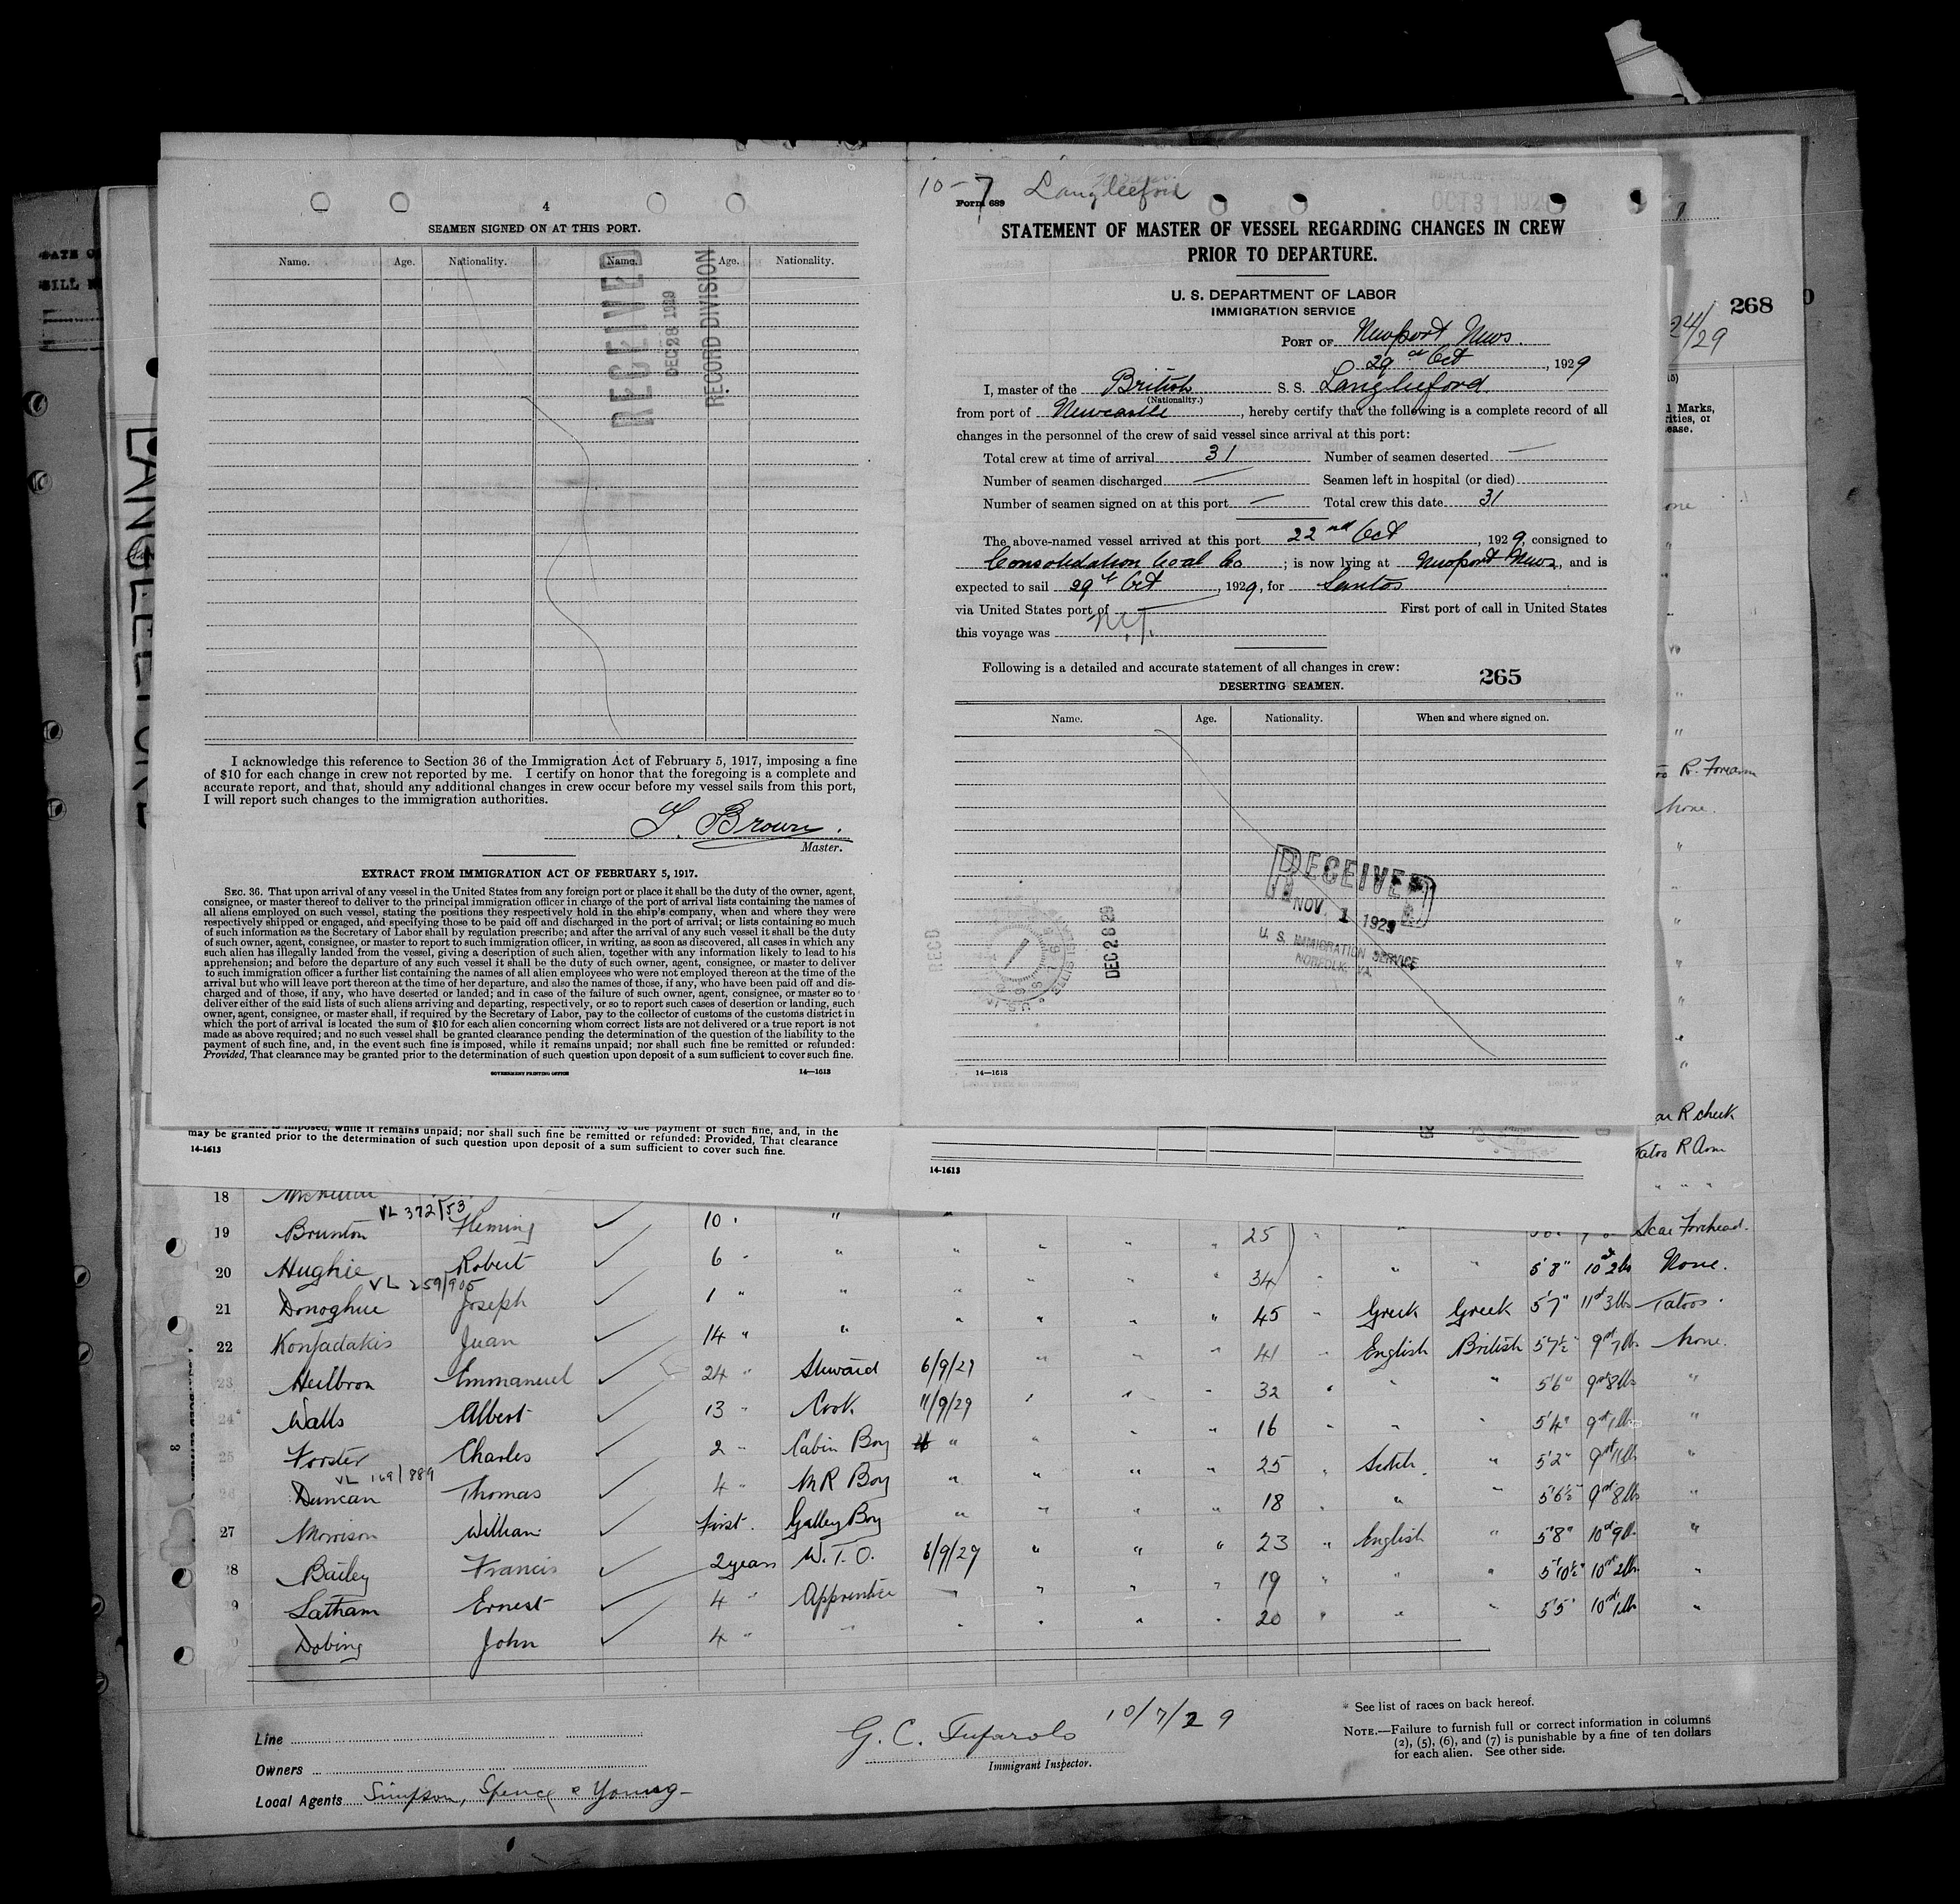 4
SEAMEN SIGNED ON AT THIS PORT.
Name. Age. Nationality. Name. Age. Nationality.
RECEIVED
DEC 28 1929
RECORD DIVISION
I acknowledge this reference to Section 36 of the Immigration Act of February 5, 1917, imposing a fine
of $10 for each change in crew not reported by me. I certify on honor that the foregoing is a complete and
accurate report, and that, should any additional changes in crew occur before my vessel sails from this port,
I will report such changes to the immigration authorities.
Brown.
Master.
EXTRACT FROM IMMIGRATION ACT OF FEBRUARY 5, 1917.
SEC. 36. That upon arrival of any vessel in the United States from any foreign port or place it shall be the duty of the owner, agent,
consignee, or master thereof to deliver to the principal immigration officer in charge of the port of arrival lists containing the names of
all aliens employed on such vessel, stating the positions they respectively hold in the ship's company, when and where they were
respectively shipped or engaged, and specifying those to be paid off and discharged in the port of arrival; or lists containing so much
of such information as the Secretary of Labor shall by regulation prescribe; and after the arrival of any such vessel it shall be the duty
of such owner, agent, consignee, or master to report to such immigration officer, in writing, as soon as discovered, all cases in which any
such alien has illegally landed from the vessel, giving a description of such alien, together with any information likely to lead to his
apprehension; and before the departure of any such vessel it shall be the duty of such owner, agent, consignee, or master to deliver
to such immigration officer a further list containing the names of all alien employees who were not employed thereon at the time of the
arrival but who will leave port thereon at the time of her departure, and also the names of those, if any, who have been paid off and dis-
charged and of those, if any, who have deserted or landed; and in case of the failure of such owner, agent, consignee, or master so to
deliver either of the said lists of such aliens arriving and departing, respectively, or so to report such cases of desertion or landing, such
owner, agent, consignee, or master shall, if required by the Secretary of Labor, pay to the collector of customs of the customs district in
which the port of arrival is located the sum of $10 for each alien concerning whom correct lists are not delivered or a true report is not
made as above required; and no such vessel shall be granted clearance pending the determination of the question of the liability to the
payment of such fine, and, in the event such fine is imposed, while it remains unpaid; nor shall such fine be remitted or refunded:
Provided, That clearance may be granted prior to the determination of such question upon deposit of a sum sufficient to cover such fine.
GOVERNMENT PRINTING OFFICE 14—1613
10-7 Langleeford
Form 689
OCT 31 1929
STATEMENT OF MASTER OF VESSEL REGARDING CHANGES IN CREW
PRIOR TO DEPARTURE.
U. S. DEPARTMENT OF LABOR
IMMIGRATION SERVICE
PORT OF Newport News.
29 Oct, 1929
I, master of the British S. S. Langleeford
(Nationality.)
from port of Newcastle, hereby certify that the following is a complete record of all
changes in the personnel of the crew of said vessel since arrival at this port:
Total crew at time of arrival 31 Number of seamen deserted —
Number of seamen discharged — Seamen left in hospital (or died)
Number of seamen signed on at this port — Total crew this date 31
The above-named vessel arrived at this port 22nd Oct, 1929, consigned to
Consolidation Coal Co; is now lying at Newport News, and is
expected to sail 29th Oct, 1929, for Santos
via United States port of — First port of call in United States
this voyage was N.Y.
Following is a detailed and accurate statement of all changes in crew:
265
DESERTING SEAMEN.
Name. Age. Nationality. When and where signed on.
RECEIVED
NOV. 1 1929
U. S. IMMIGRATION SERVICE
NORFOLK, VA.
REC'D
DEC 28 29
ELLIS ISLAND
14—1613
268
24/29
l Marks,
rities, or
ease.
R. Forearm
None.
R cheek
R Arm
LANGLEEFORD
is imposed, while it remains unpaid; nor shall such fine be remitted or refunded: Provided, That clearance
may be granted prior to the determination of such question upon deposit of a sum sufficient to cover such fine.
14-1613
14-1613
18
VL 372/153
19 Brunton Fleming 10 " " " " " " 25 " " Scar Forehead.
20 Hughie Robert 6 " " " " " " 34 " " " 5'8" 10st 2lbs None.
VL 259/905
21 Donoghue Joseph 1 " " " " " " 45 " Greek Greek 5'7" 11st 3lbs Tatoo.
22 Konfadakis Juan 14 " " " " " " 41 " English British 5'7½" 9st 7lbs None.
23 Heilbron Emmanuel 24 " Steward 6/9/29 " " " 32 " " " 5'6" 9st 8lbs "
24 Watts Albert 13 " Cook 11/9/29 " " " 16 " " " 5'4" 9st 1lb "
25 Forster Charles 2 " Cabin Boy " " " " 25 " Scotch " 5'2" 9st 11lb "
VL 169/889
26 Duncan Thomas 4 " M R Boy " " " " 18 " " " 5'6½" 9st 8lbs "
27 Morrison William First. Galley Boy " " " " 23 " English " 5'8" 10st 9lb "
28 Bailey Francis 2 years W. T. O. 6/9/29 " " " 19 " " " 5'10½" 10st 2lb "
29 Latham Ernest 4 " Apprentice " " " " 20 " " " 5'5" 10st 1lb "
Dobing John 4 " " " " " "
Line
Owners
Local Agents Simpson, Spence & Young
G. C. Tufarolo 10/7/29
Immigrant Inspector.
* See list of races on back hereof.
NOTE.—Failure to furnish full or correct information in columns
(2), (5), (6), and (7) is punishable by a fine of ten dollars
for each alien. See other side.